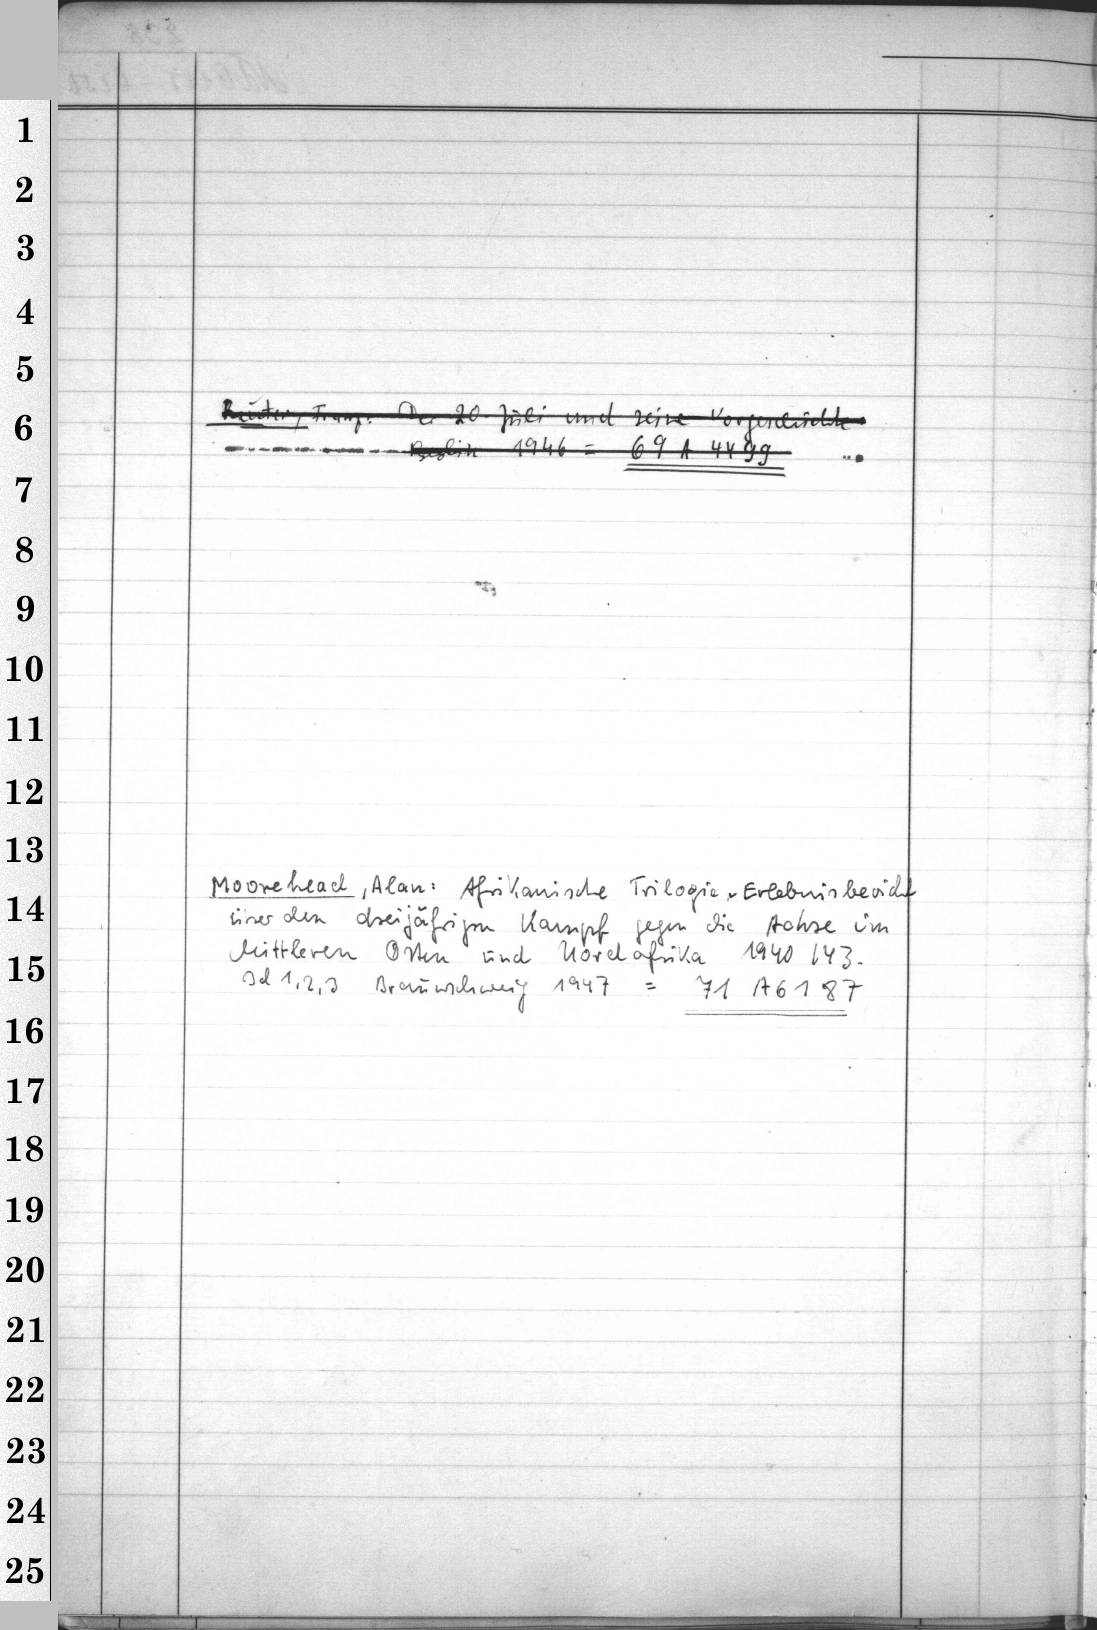 1
2
3
4
5
6
Reuter, Franz: Der 20. Juli und seine Vorgeschichte
Berlin 1946 = 69 A 4499
7
8
9
10
11
12
13
Moorehead, Alan: Afrikanische Trilogie. Erlebnisbericht
14
über den dreijährigen Kampf gegen die Achse im
Mittleren Osten und Nordafrika 1940/43.
15
Bd 1,2,3 Braunschweig 1947 = 71 A 6187
16
17
18
19
20
21
22
23
24
25